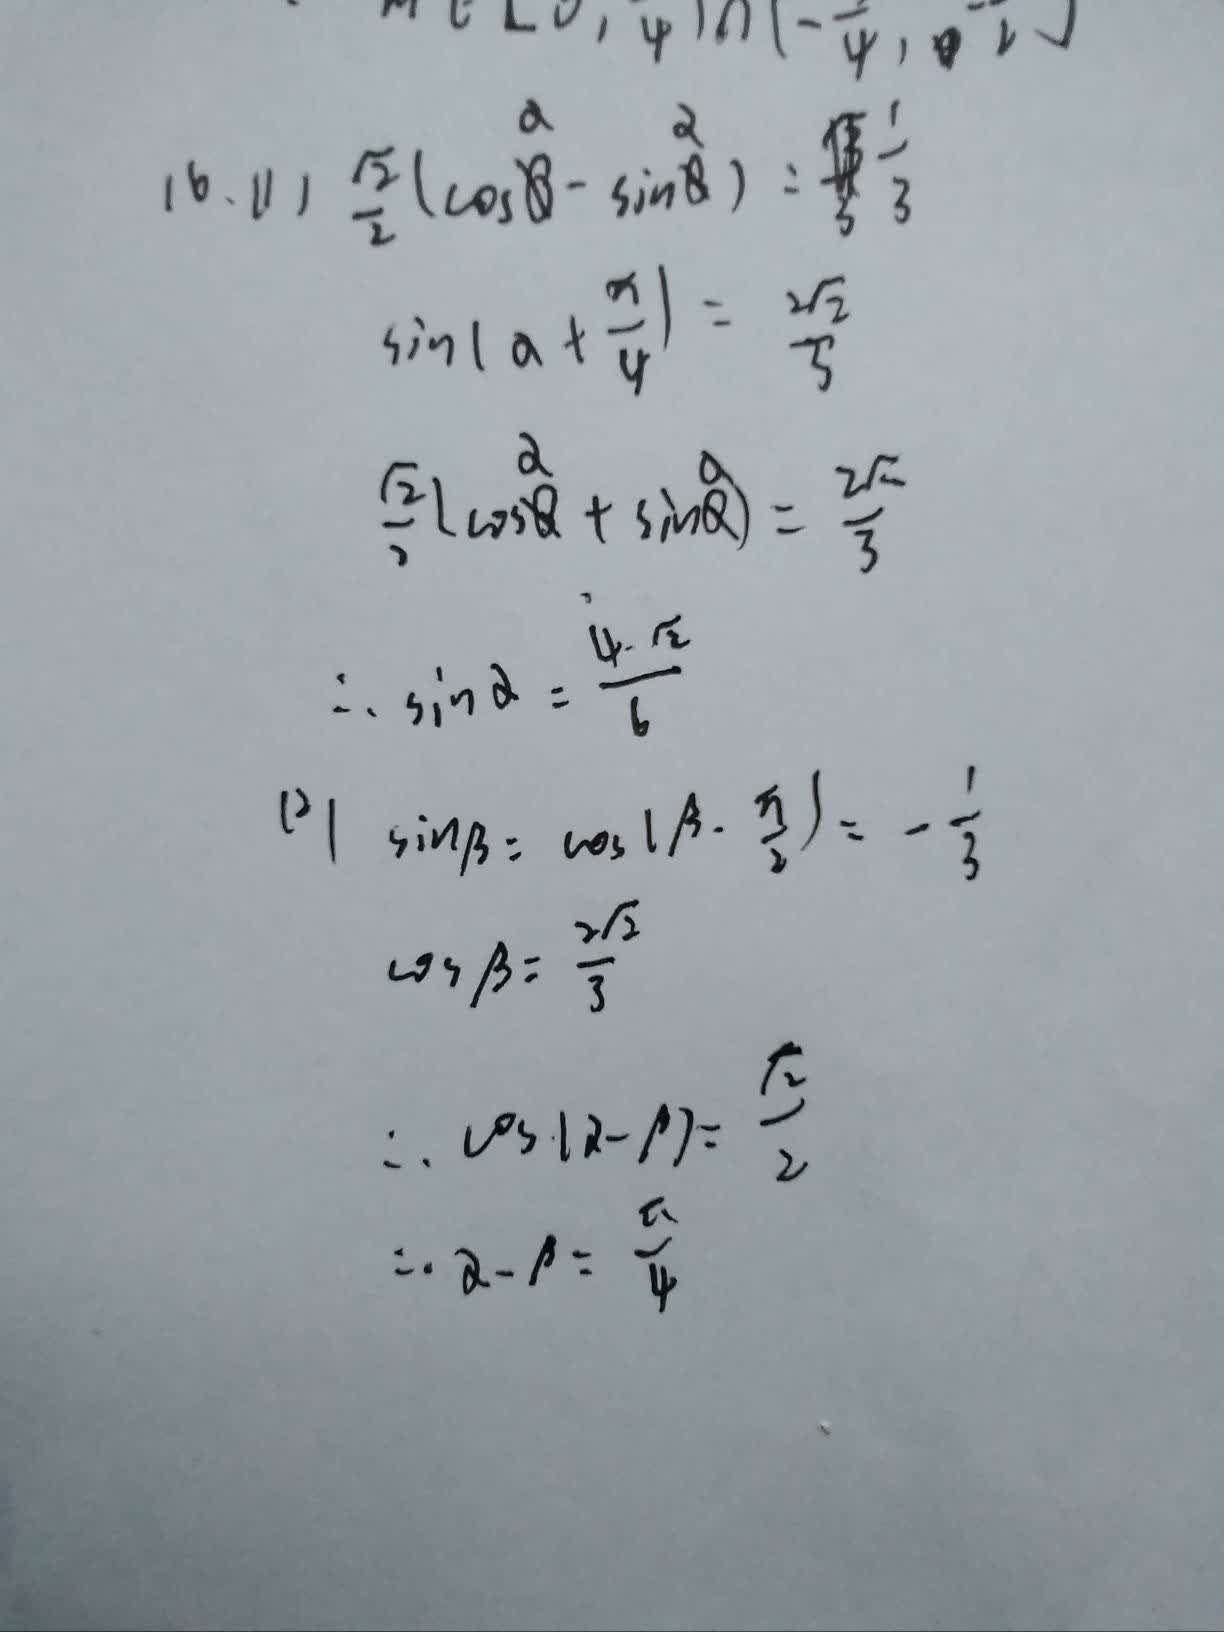 16.(1) √2/2 (cosα - sinα) = 1/3
sin(α + π/4) = 2√2/3
√2/2 (cosα + sinα) = 2√2/3
∴ sinα = (4-√2)/6
(2) sinβ = cos(β - π/2) = -1/3
cosβ = 2√2/3
∴ cos(α-β) = √2/2
∴ α-β = π/4